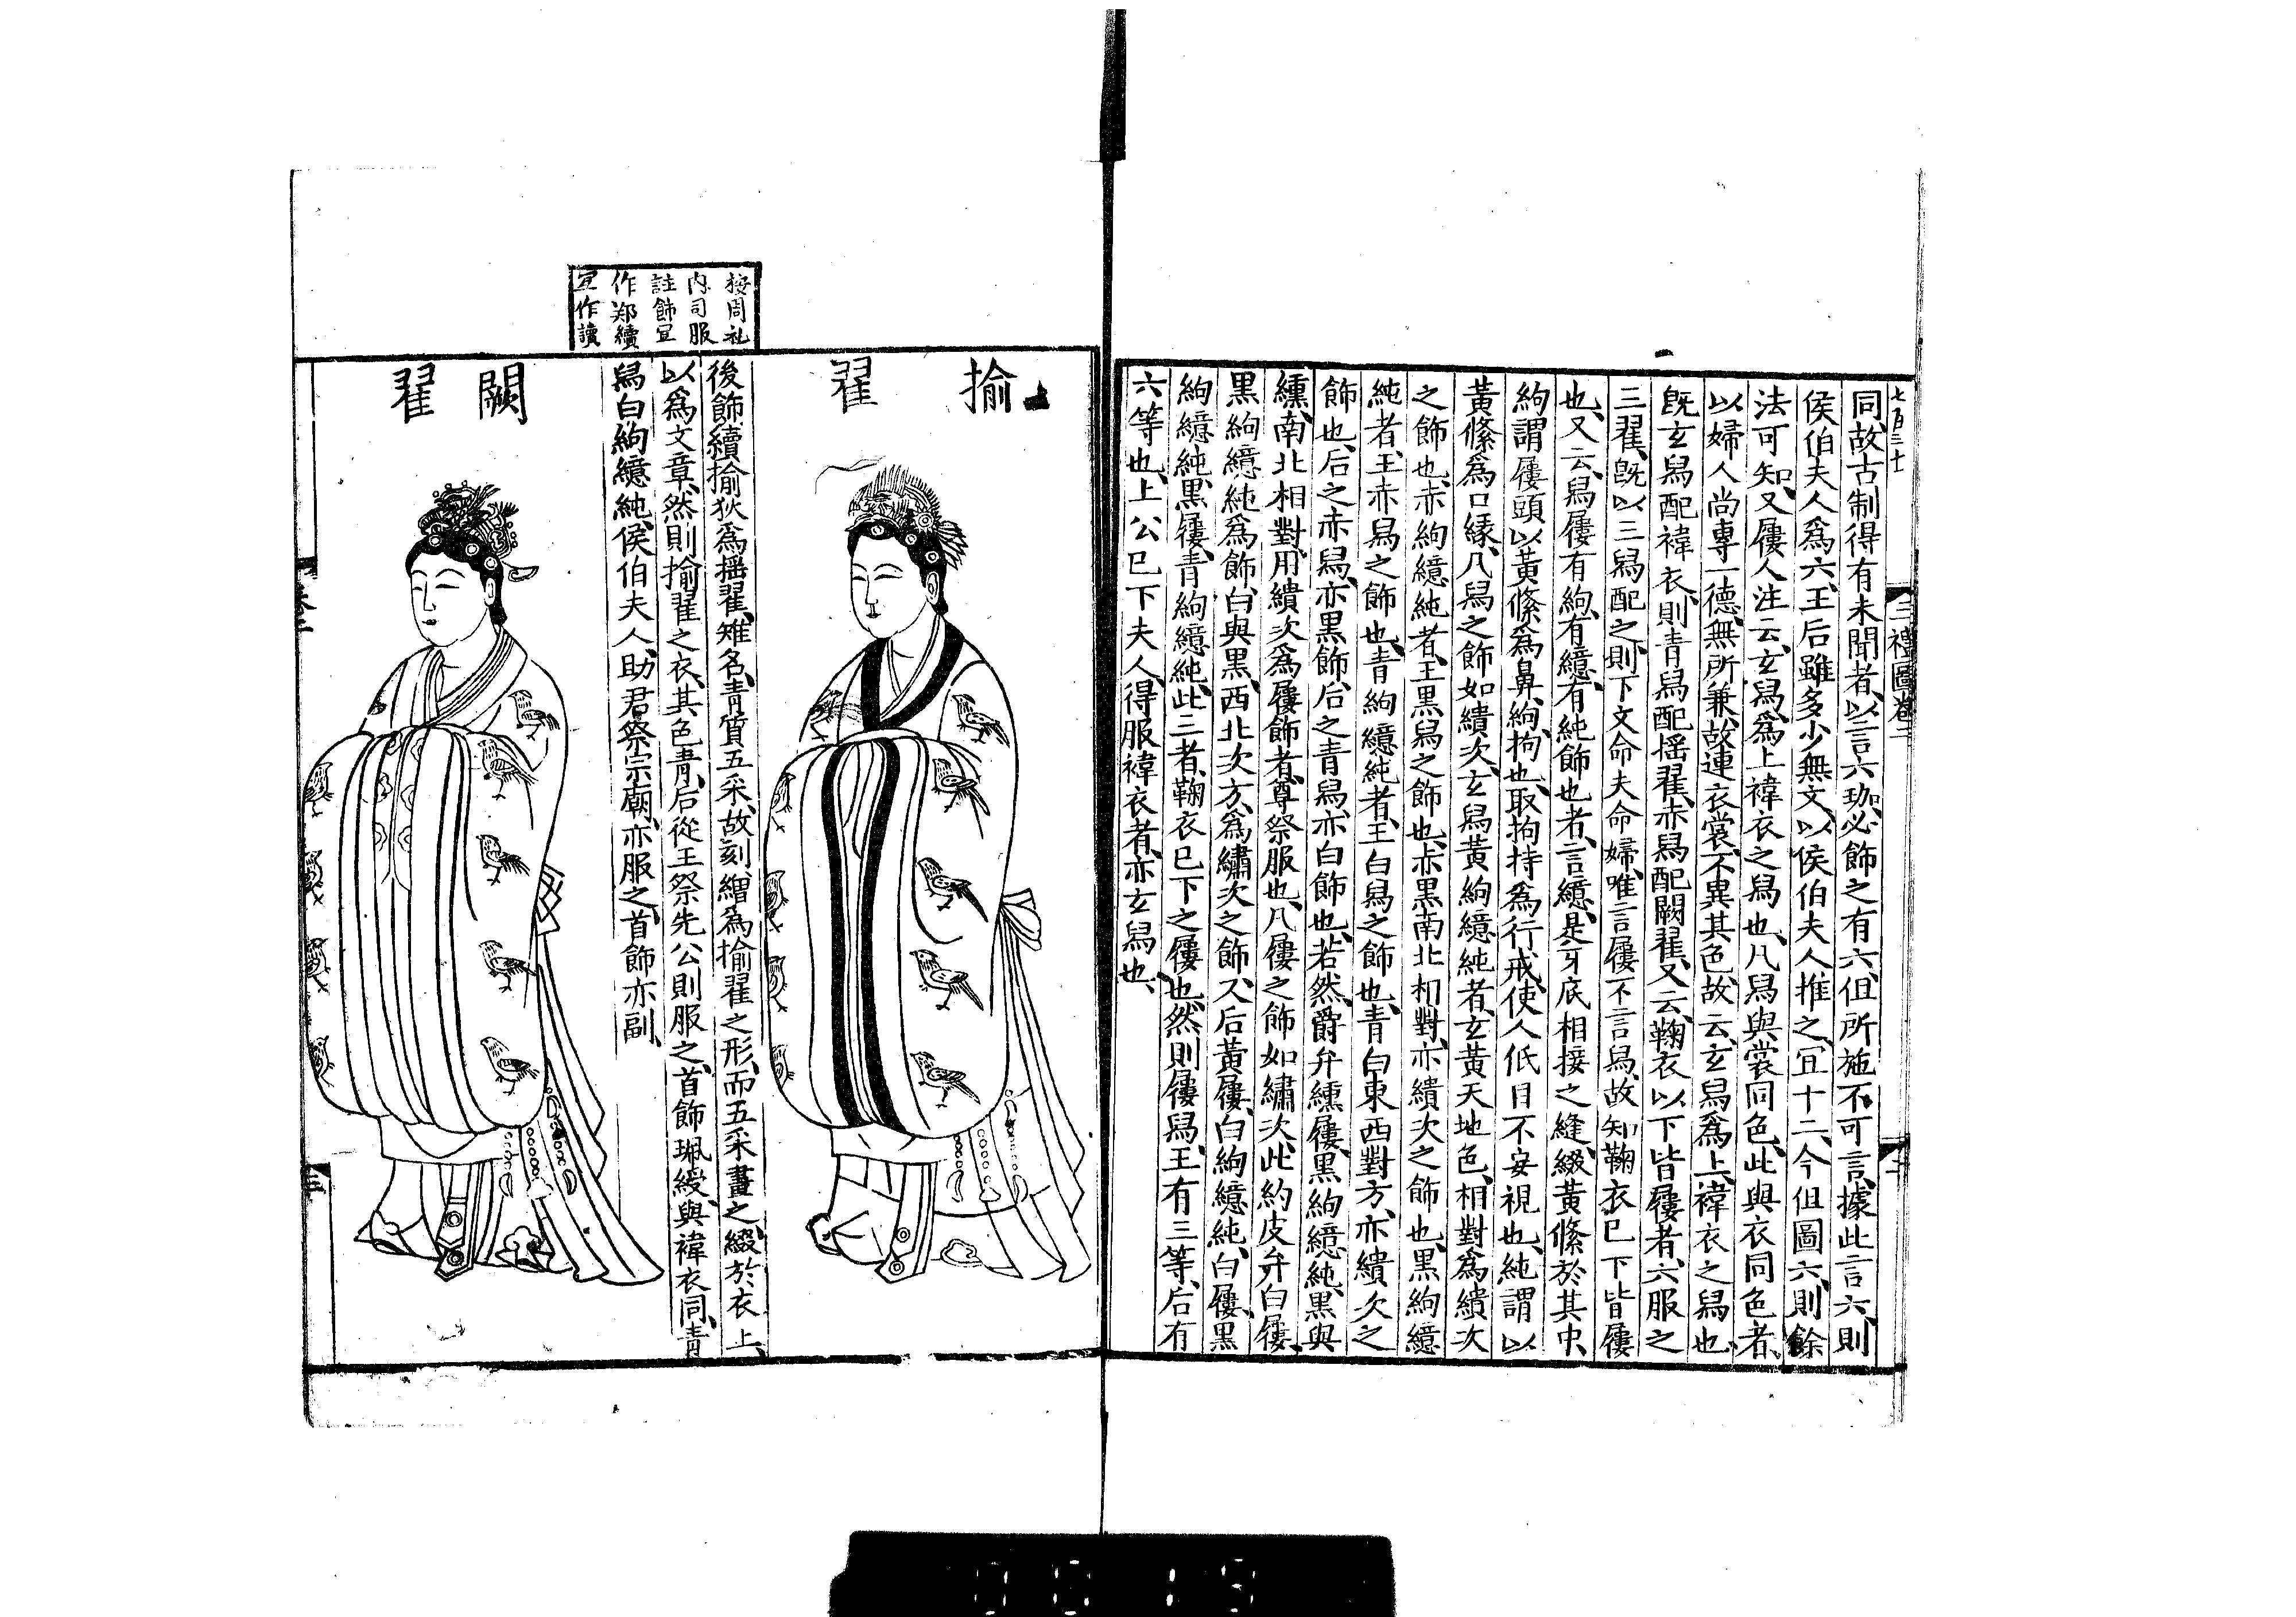 七百三十
三禮圖卷二
二
同故古制得有未聞者以言六珈必飾之有六但所施不可言據此言六則
侯伯夫人爲六王后雖多少無文以侯伯夫人推之冝十二今但圖六則餘
法可知又屨人注云玄舄爲上褘衣之舄也凡舄與裳同色此與衣同色者
以婦人尚專一德無所兼故連衣裳不異其色故云玄舄爲上褘衣之舄也
旣玄舄配褘衣則青舄配揺翟赤舄配闕翟又云鞠衣以下皆屨者六服之
三翟旣以三舄配之則下文命夫命婦唯言屨不言舄故知鞠衣已下皆屨
也又云舄屨有絇有繶有純飾也者言繶是牙底相接之縫綴黃絛於其中
絇謂屨頭以黃絛爲鼻絇拘也取拘持爲行戒使人低目不妄視也純謂以
黃絛爲口緣凡舄之飾如繢次玄舄黃絇繶純者玄黃天地色相對爲繢次
之飾也赤絇繶純者王黒舄之飾也赤黒南北相對亦繢次之飾也黒絇繶
純者王赤舄之飾也青絇繶純者王白舄之飾也青白東西對方亦繢次之
飾也后之赤舄亦黒飾后之青舄亦白飾也若然爵弁纁屨黒絇繶純黒與
纁南北相對用繢次爲屨飾者尊祭服也凡屨之飾如繡次此約皮弁白屨
黒絇繶純爲飾白與黒西北次方爲繡次之飾又后黃屨白絇繶純白屨黒
絇繶純黒屨青絇繶純此三者鞠衣已下之屨也然則屨舄王有三等后有
六等也上公已下夫人得服褘衣者亦玄舄也
揄翟
按周礼
内司服
註飾冝
作郑續
冝作讀
後飾續揄狄爲揺翟雉名青質五采故刻繒爲揄翟之形而五采畫之綴於衣上
以爲文章然則揄翟之衣其色青后從王祭先公則服之首飾珮綬與褘衣同青
舄白絇繶純侯伯夫人助君祭宗廟亦服之首飾亦副
闕翟
三